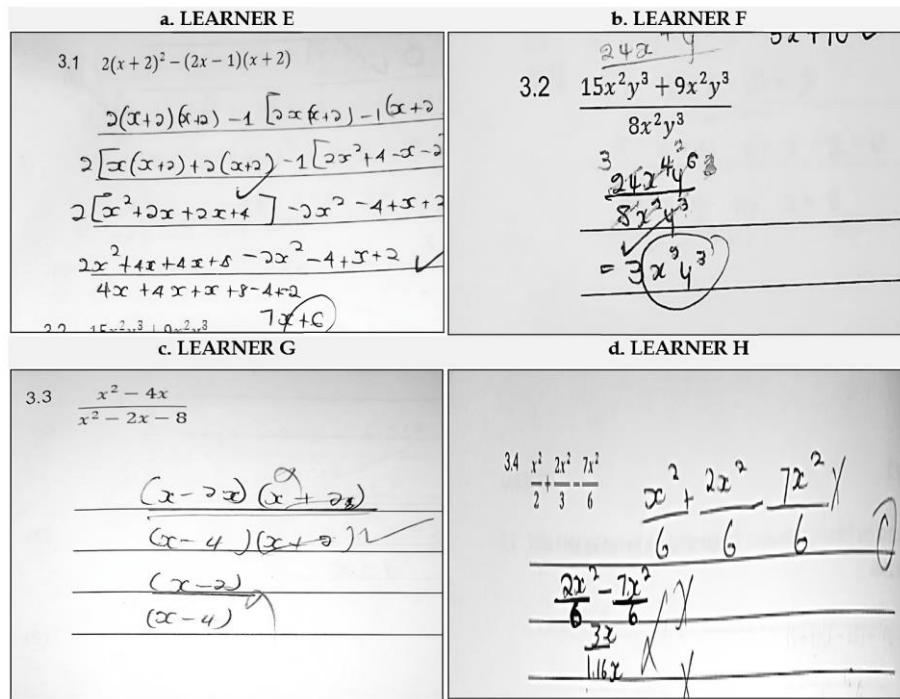 a. LEARNER E
3.1 2(x + 2)² − (2x − 1)(x + 2)
2(x+2)(x+2) -1 [2x(x+2) -1(x+2
2[x(x+2)+2(x+2) -1[2x²+4-x-2
2[x²+2x+2x+4] -2x²-4+x+2
2x²+4x+4x+8 -2x²-4+x+2
4x+4x+x+8-4+2
7x+6
b. LEARNER F
24x⁴y
5x+10
3.2 15x²y³ + 9x²y³
8x²y³
3 2
24x⁴y⁶ 3
8x²y³
= 3x²y³
c. LEARNER G
3.3 x² − 4x
x² − 2x − 8
(x-2x)(x+2x)
(x-4)(x+2)
(x-2)
(x-4)
d. LEARNER H
3.4 x²/2 + 2x²/3 − 7x²/6
x²/6 + 2x²/6 - 7x²/6
2x²/6 - 7x²/6
3x
1.16x